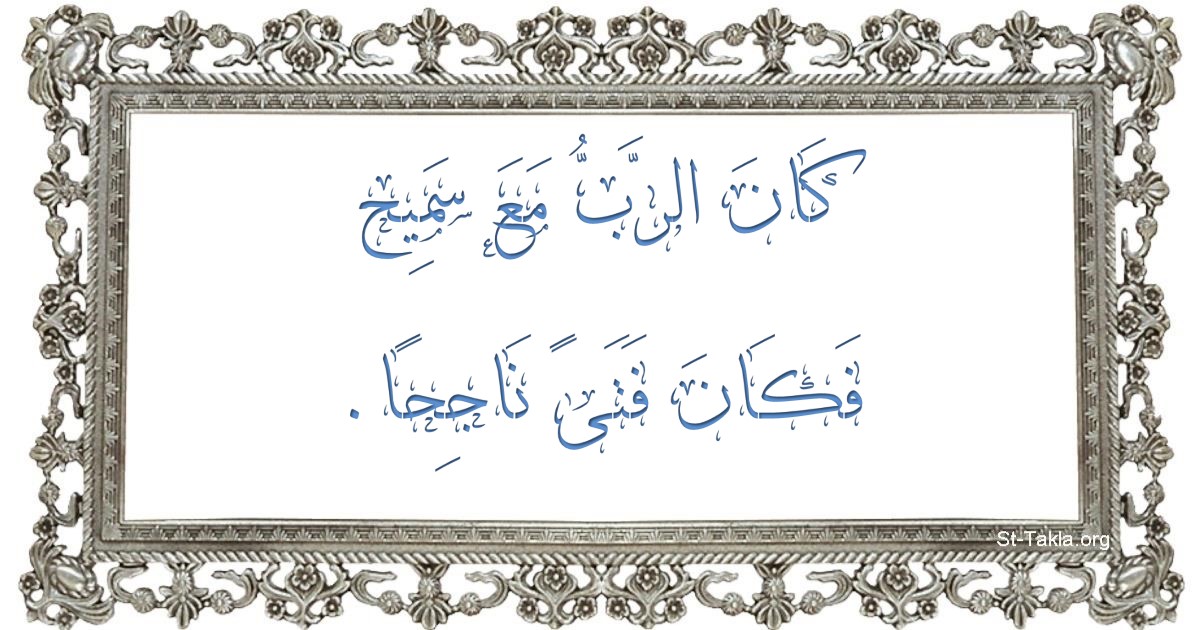 كَانَ الرَّبُّ مَعَ سَمِيح
فَكَانَ فَتَىً نَاجِحًا .
St-Takla.org